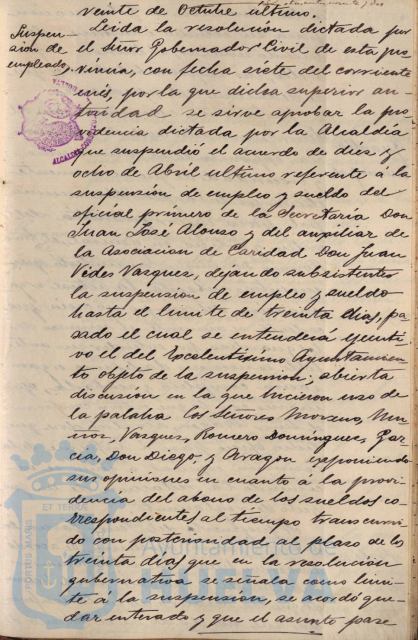 veinte de Octubre ultimo.
Suspen-
sion de
empleado,
Leida la resolución dictada por
el Señor Gobernador Civil de esta pro
vincia, con fecha siete del corriente
mes, por la que dicha superior au-
toridad se sirve aprobar la pro
videncia dictada por la Alcaldia
que suspendió el acuerdo de diez y
ocho de Abril ultimo referente á la
suspensión de empleo y sueldo del
oficial primero de la Secretaria Don
Juan José Alonso y del auxiliar de
la Asociacion de Caridad Don Juan
Vides Vasquez, dejando subsistente
la suspension de empleo y sueldo
hasta el limite de treinta dias, pa
sado el cual se entenderá ejecuti
vo el del Excelentísimo Ayuntamien
to objeto de la suspension; abierta
discusion en la que hicieron uso de
la palabra los Señores Moreno, Mu
ñoz, Vasquez, Romero Dominguez Gar
cia, Don Diego, y Aragon exponiendo
sus opiniones en cuanto á la provi
dencia del abono de los sueldos co
rrespondientes al tiempo transcurri
do con posterioridad al plazo de los
treinta dias que en la resolucion
gubernativa se señala como limi
te á la suspensión, se acordó que
dar enterado y que el asunto pase
ET TERRÆ
PORTUS MARIS
Ayuntamiento de
HUELVA